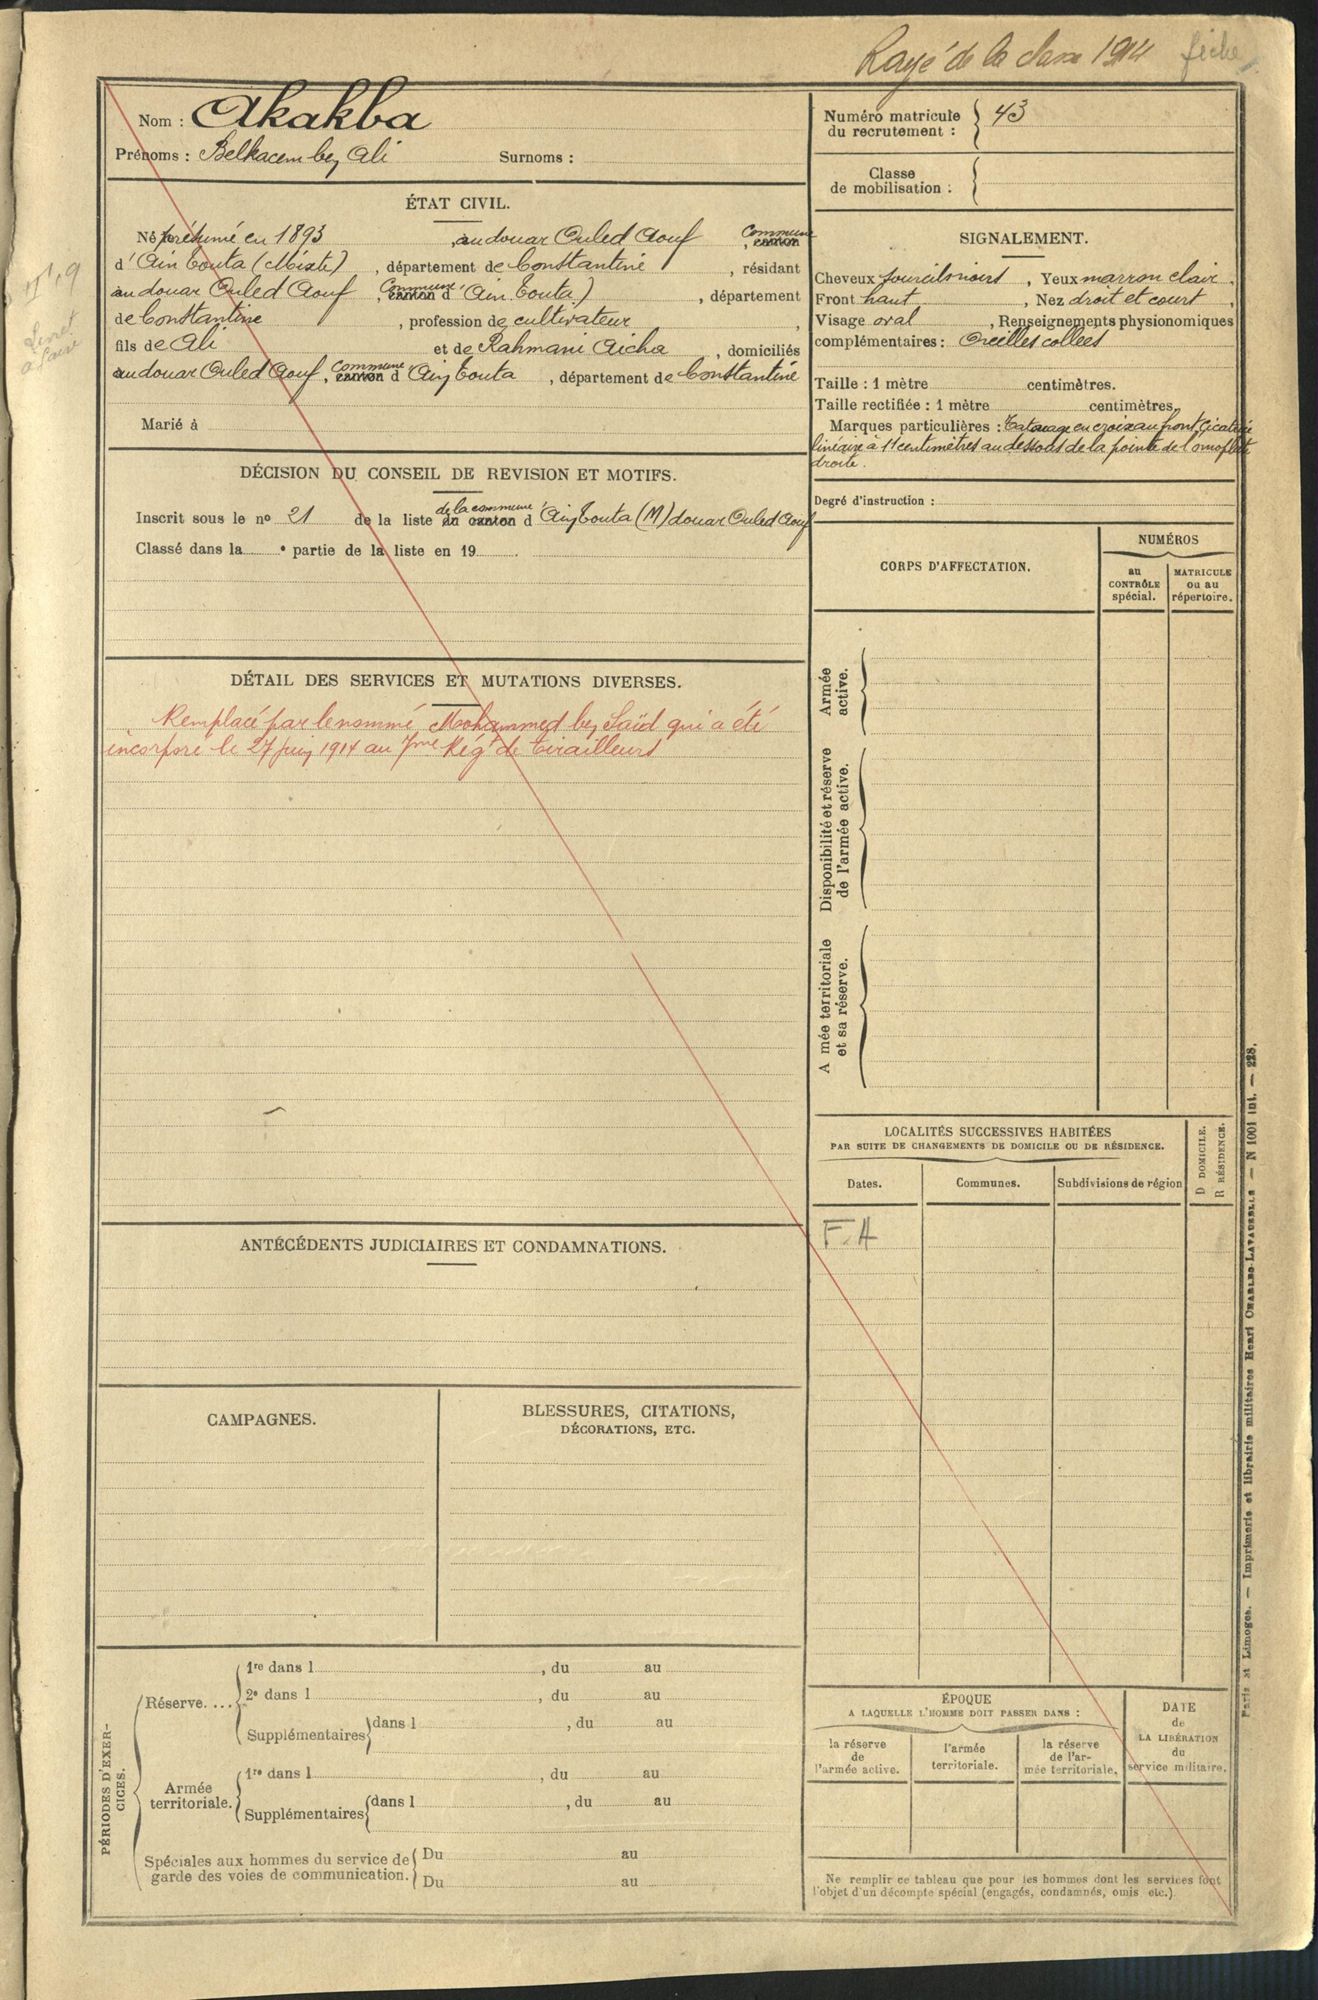 Rayé de la classe 1914 fiche
Nom : Akakba
Prénoms : Belkacem ben Ali Surnoms :
Numéro matricule du recrutement : 43
Classe de mobilisation :
ÉTAT CIVIL.
Né présumé en 1893, au douar Ouled Aouf, Commune canton
d'Ain Touta (Mixte), département de Constantine, résidant
au douar Ouled Aouf, Commune canton d'Ain Touta), département
de Constantine, profession de cultivateur,
fils de Ali et de Rahmani Aicha, domiciliés
au douar Ouled Aouf, Commune canton d'Ain Touta, département de Constantine
Marié à
Livret à faire
DÉCISION DU CONSEIL DE REVISION ET MOTIFS.
de la commune
Inscrit sous le nº 21 de la liste du canton d'Ain Touta (M) douar Ouled Aouf
Classé dans la e partie de la liste en 19 .
DÉTAIL DES SERVICES ET MUTATIONS DIVERSES.
Remplacé par le nommé Mohammed ben Saïd qui a été
incorporé le 27 juin 1914 au 7me Régt de Tirailleurs
ANTÉCÉDENTS JUDICIAIRES ET CONDAMNATIONS.
CAMPAGNES.
BLESSURES, CITATIONS,
DÉCORATIONS, ETC.
PÉRIODES D'EXERCICES.
Réserve....
1re dans l , du au
2e dans l , du au
Supplémentaires dans l , du au
Armée territoriale.
1re dans l , du au
Supplémentaires dans l , du au
Spéciales aux hommes du service de garde des voies de communication.
Du au
Du au
SIGNALEMENT.
Cheveux sourcils noirs, Yeux marron clair,
Front haut, Nez droit et court,
Visage oval, Renseignements physionomiques
complémentaires : Oreilles collées
Taille : 1 mètre centimètres.
Taille rectifiée : 1 mètre centimètres.
Marques particulières : Tatouage en croix au front, Cicatrice
linéaire à 11 centimètres au dessous de la pointe de l'omoplate
droite.
Degré d'instruction :
CORPS D'AFFECTATION.
NUMÉROS
au CONTRÔLE spécial.
MATRICULE ou au répertoire.
Armée active.
Disponibilité et réserve de l'armée active.
A mée territoriale et sa réserve.
LOCALITÉS SUCCESSIVES HABITÉES
PAR SUITE DE CHANGEMENTS DE DOMICILE OU DE RÉSIDENCE.
D DOMICILE.
R RÉSIDENCE.
Dates. Communes. Subdivisions de région
F.A
ÉPOQUE
A LAQUELLE L'HOMME DOIT PASSER DANS :
la réserve de l'armée active.
l'armée territoriale.
la réserve de l'armée territoriale.
DATE de LA LIBÉRATION du service militaire.
Ne remplir ce tableau que pour les hommes dont les services font
l'objet d'un décompte spécial (engagés, condamnés, omis etc.)
Paris et Limoges. — Imprimerie et librairie militaires Henri CHARLES-LAVAUZELLE — N 1001 int. — 228.